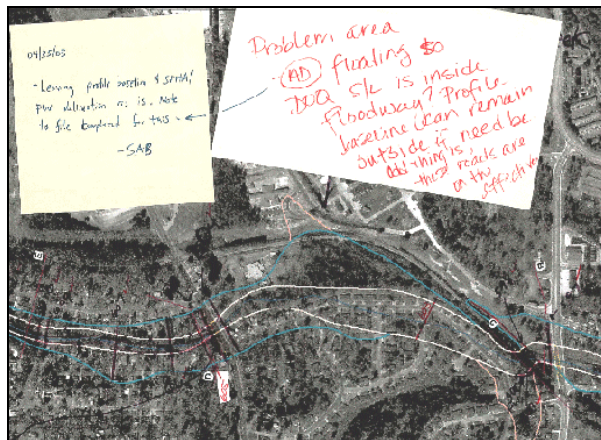 04/25/05
- Leaving profile baseline & SFHA/
FW delineation as is. Note
to file completed for this.
- SAB
Problem area
- AD floating so
DOQ S/c is inside
floodway? Profile
baseline can remain
outside if need be
odd thing is,
these roads are
on the effective
OK